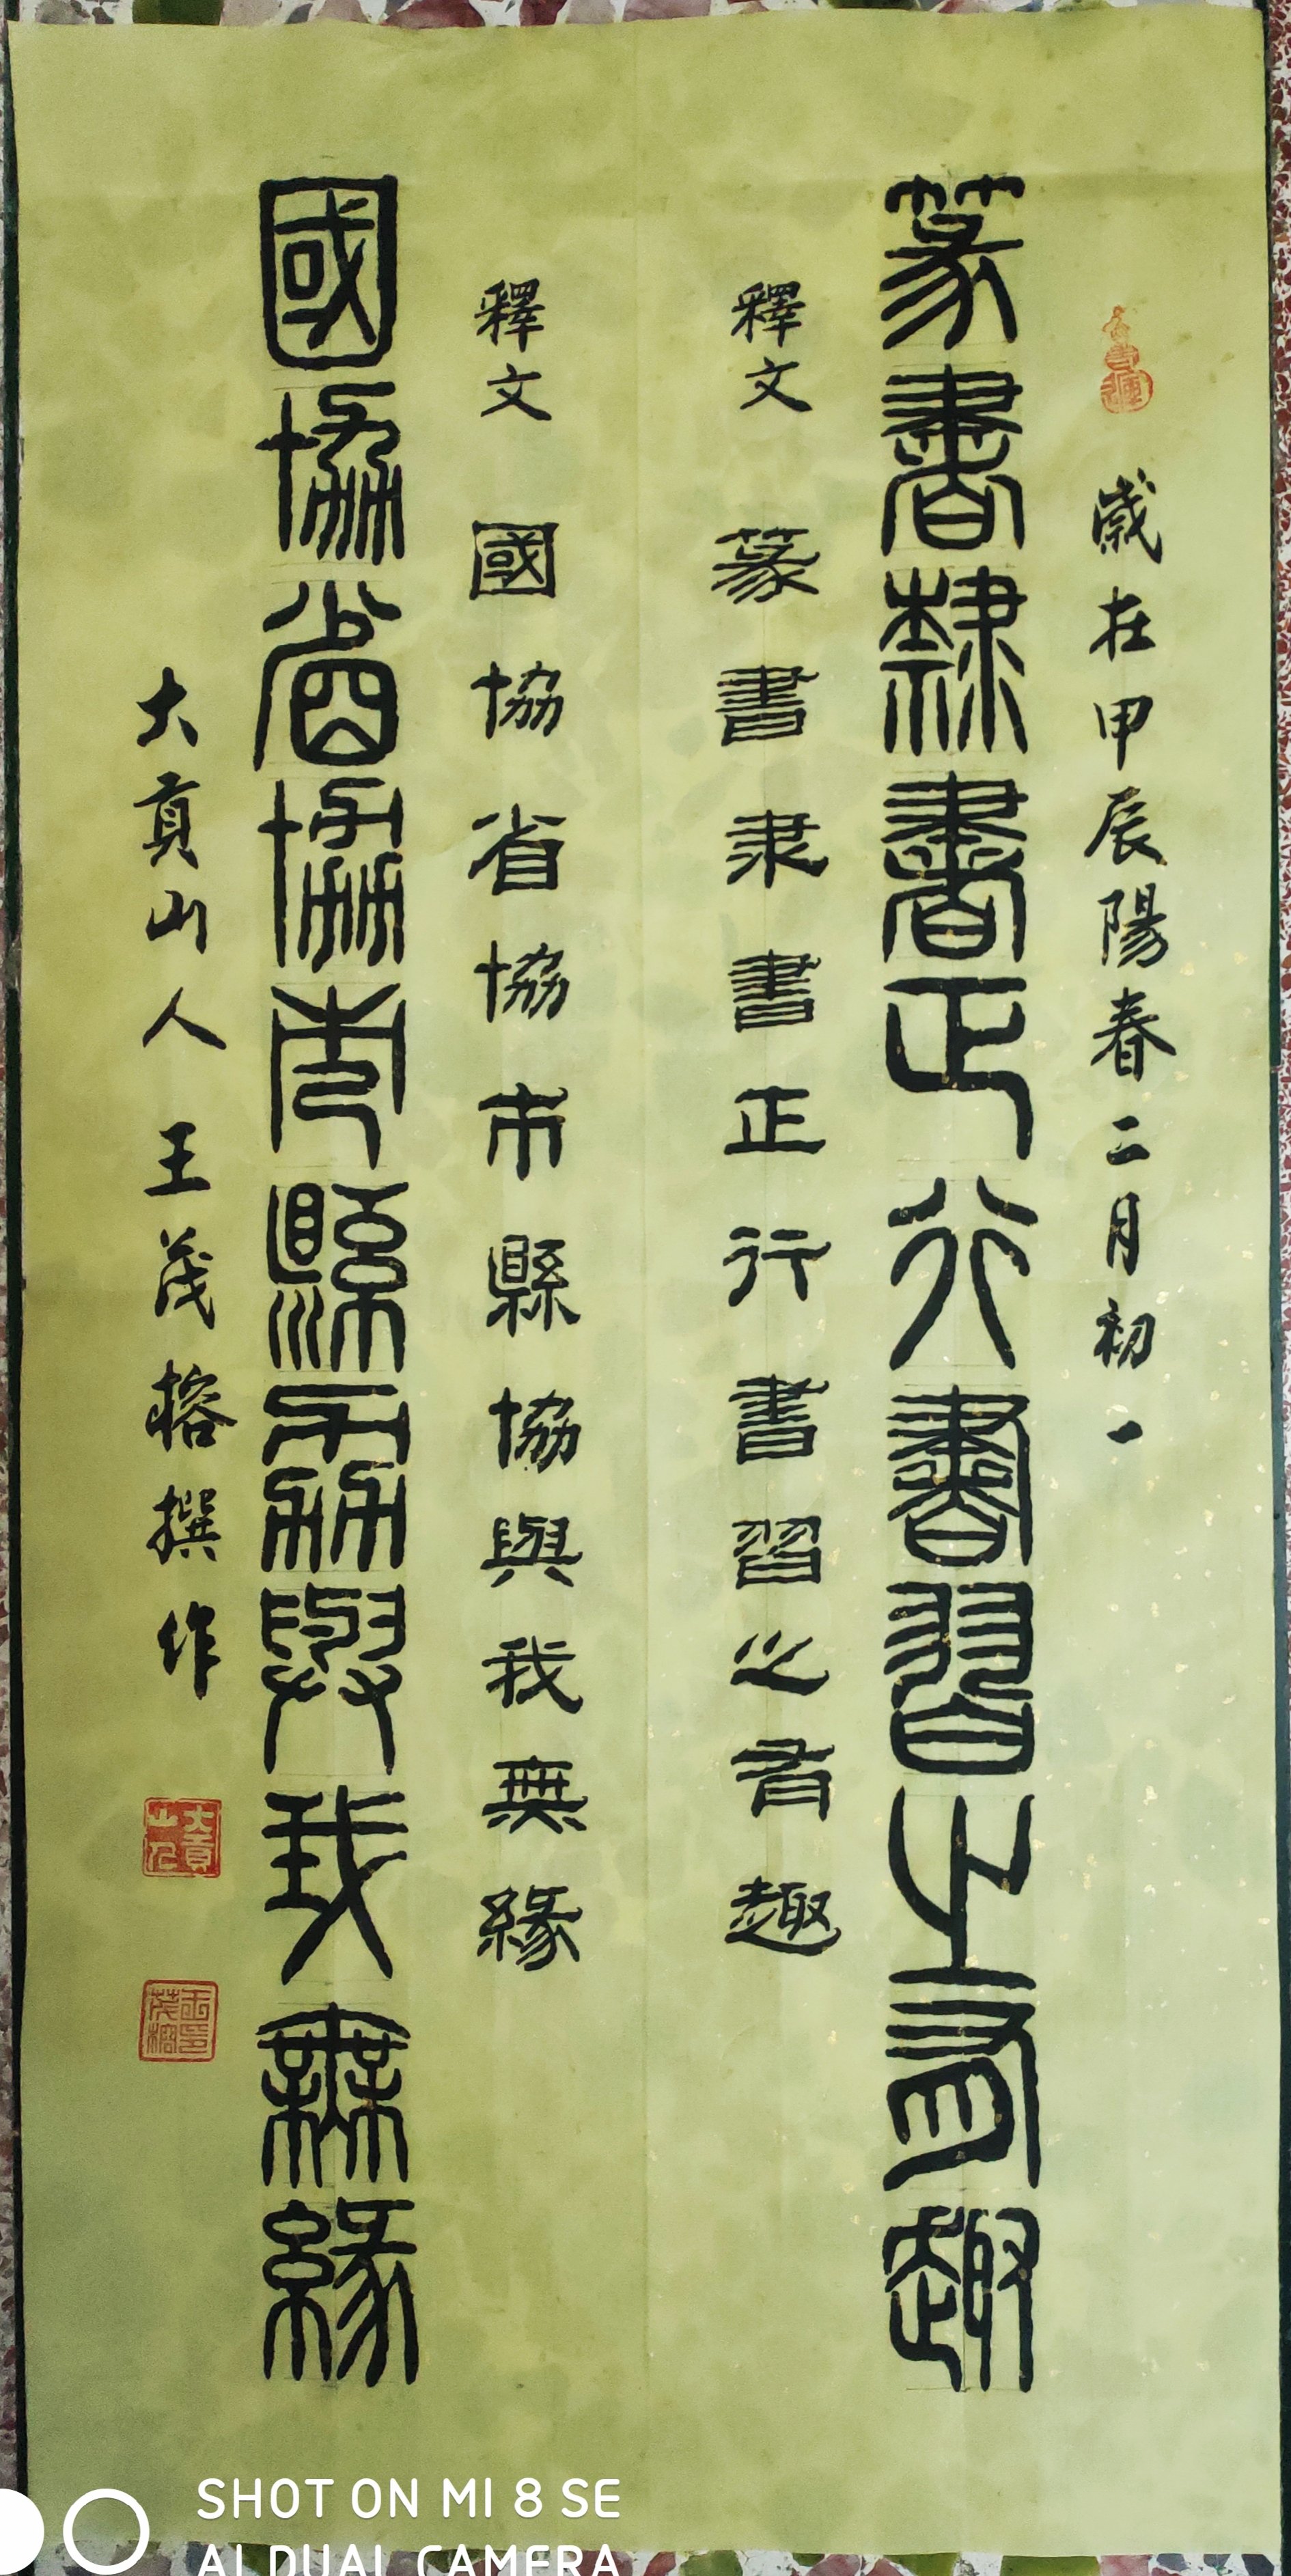 歲在甲辰陽春二月初一
篆書隸書正行書習之有趣
釋文 篆書隶書正行書習之有趣
釋文 國協省協市縣協與我無緣
國協省協市縣協與我無緣
大貢山人王茂榕撰作
大貢山人
王茂榕印
SHOT ON MI 8 SE
AI DUAL CAMERA